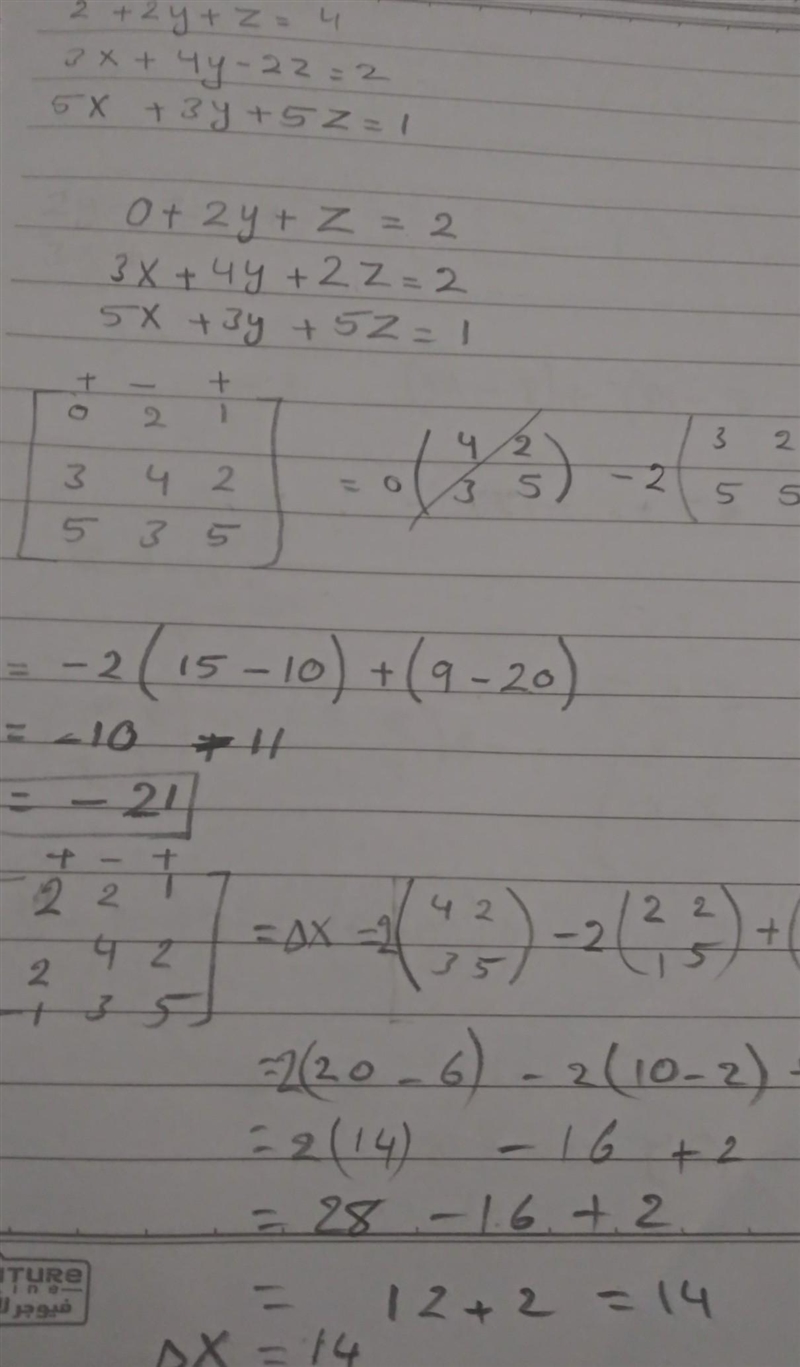 2 + 2y + z = 4
3x + 4y - 2z = 2
5x + 3y + 5z = 1
0 + 2y + z = 2
3x + 4y + 2z = 2
5x + 3y + 5z = 1
+ - +
0 2 1
3 4 2
5 3 5
= 0 (4 2 3 5) - 2 (3 2 5 5
= -2(15 - 10) + (9 - 20)
= -10 - 11
= -21
+ - +
2 2 1
2 4 2
1 3 5
= Δx = 2(4 2 3 5) - 2(2 2 1 5) + (
= 2(20 - 6) - 2(10 - 2)
= 2(14) - 16 + 2
= 28 - 16 + 2
= 12 + 2 = 14
Δx = 14